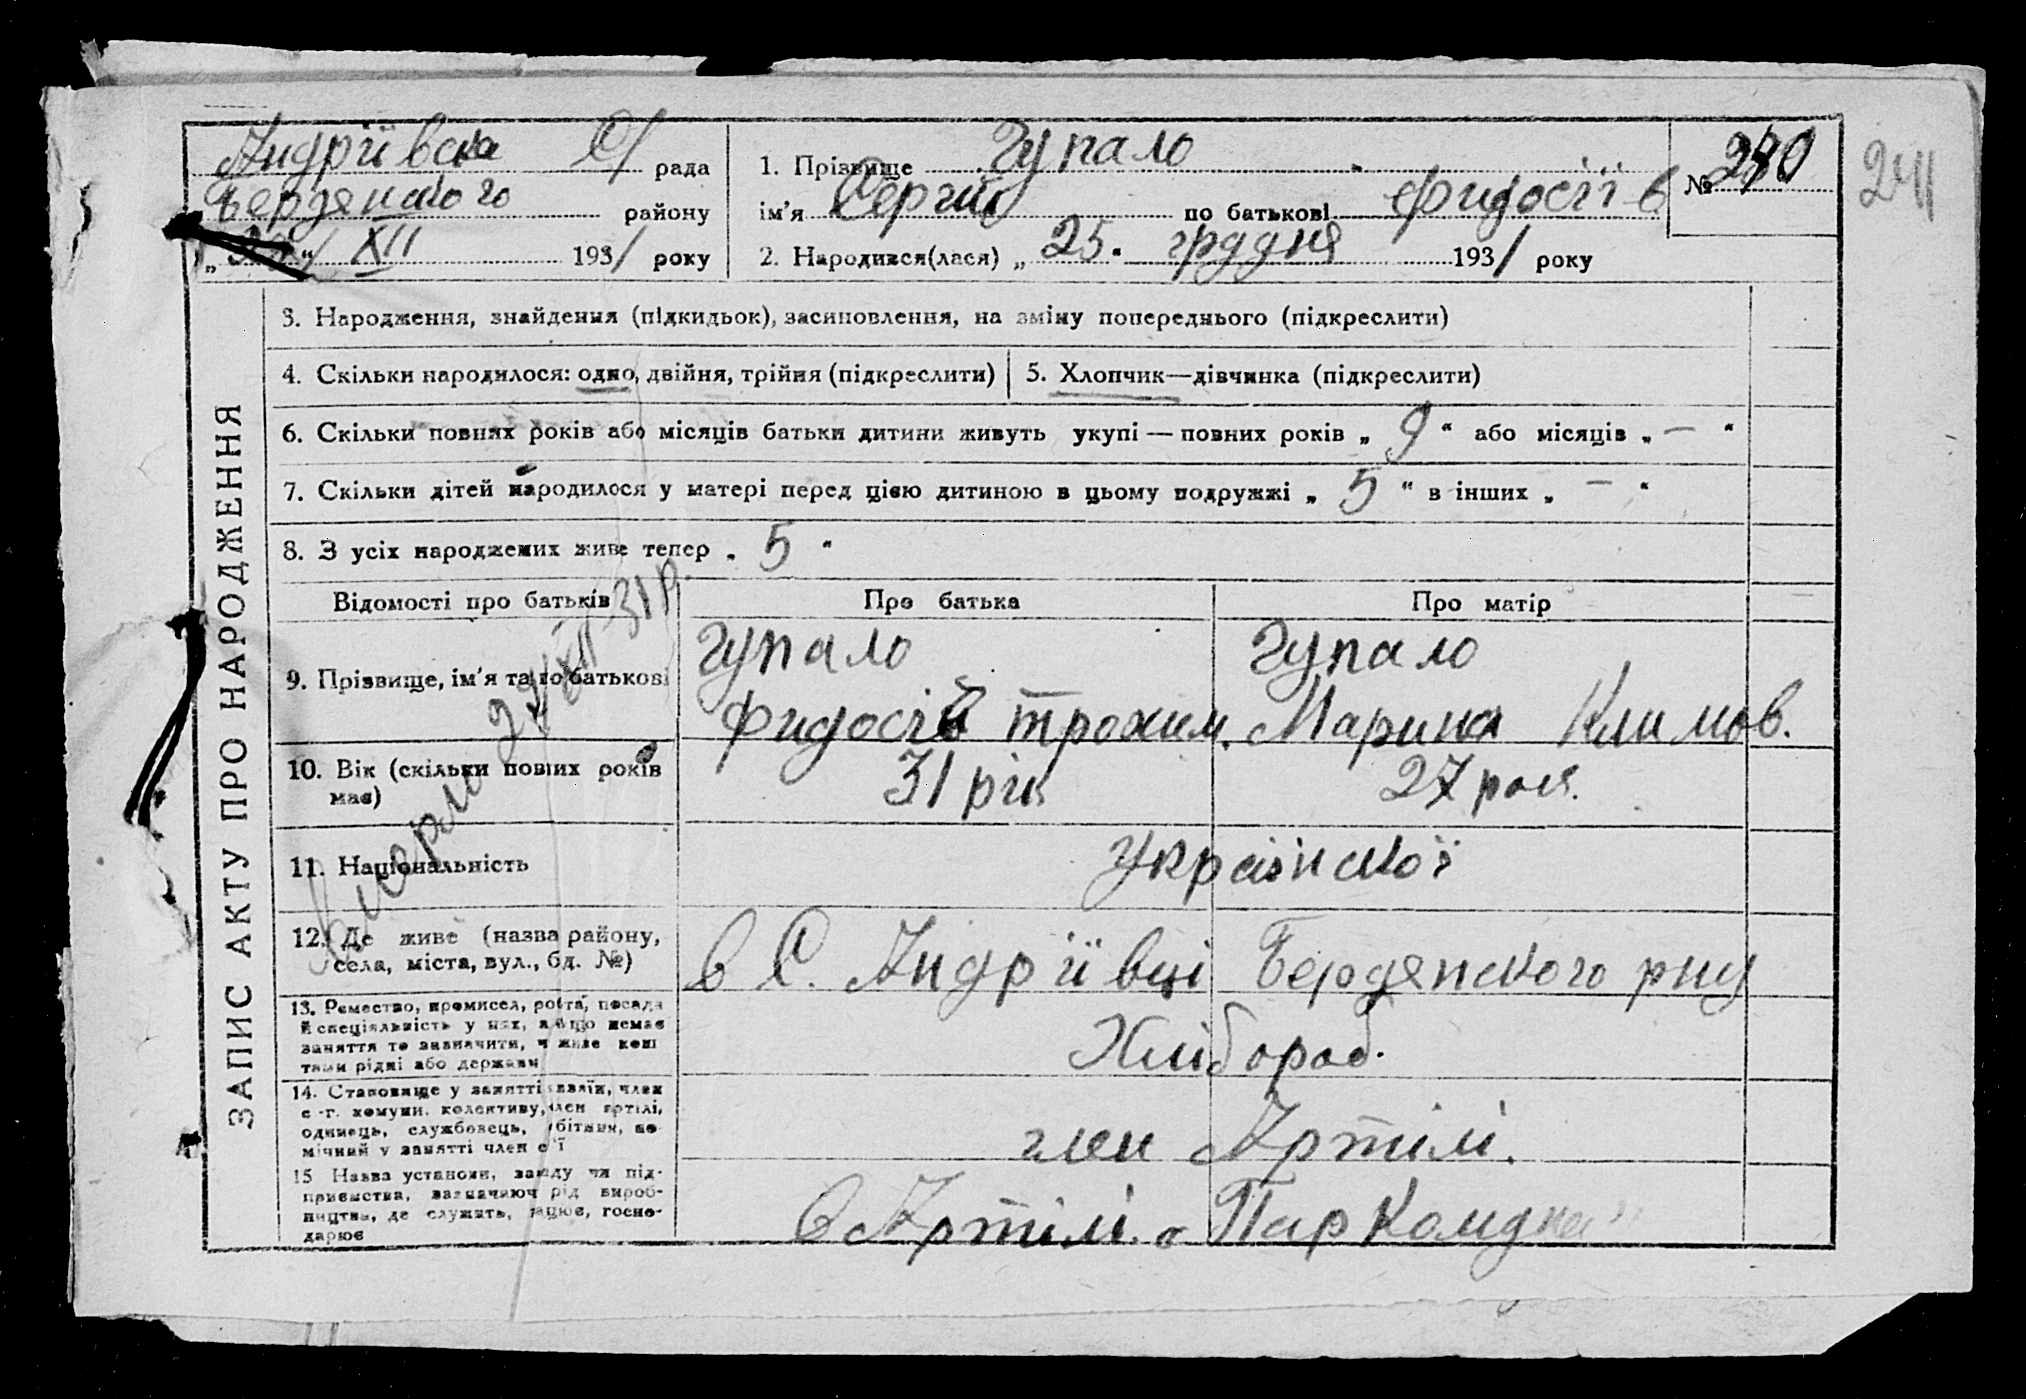 Андріївська С/ рада
Бердянського району
XII 1931 року
1. Прізвище Гупало
ім'я Сергій по батькові Фидосіїв
2. Народився(лася) „ 25 " грудня 1931 року
№ 240
241
ЗАПИС АКТУ ПРО НАРОДЖЕННЯ
3. Народження, знайдення (підкидьок), засиновлення, на зміну попереднього (підкреслити)
4. Скільки народилося: одно, двійня, трійня (підкреслити)
5. Хлопчик—дівчинка (підкреслити)
6. Скільки повних років або місяців батьки дитини живуть укупі — повних років „ 9 " або місяців „ — "
7. Скільки дітей народилося у матері перед цією дитиною в цьому подружжі „ 5 " в інших „ — "
8. З усіх народжених живе тепер „ 5 "
Відомості про батьків
Про батька
Про матір
9. Прізвище, ім'я та по батькові
Гупало
Фидосій Трохим.
Гупало
Марина Климов.
10. Вік (скільки повних років
має)
31 рік
27 рок.
11. Національність
Української
12. Де живе (назва району,
села, міста, вул., бд. №)
в С. Андріївці Бердянського рну
13. Ремество, промисел, робота, посада
й спеціяльність у них, якщо немає
заняття то зазначити, чи живе кош
тами рідні або держави
Хлібороб.
14. Становище у занятті: хазяїн, член
с.-г. комуни, колективу, член артілі,
одинець, службовець, робітник, по-
мічний у занятті член сім'ї
член Артілі.
15 Назва установи, заводу чи під-
приємства, зазначаючи рід вироб-
ництва, де служить, працює, госпо-
дарює
В Артілі. „ Пар Комуна "
31 р.